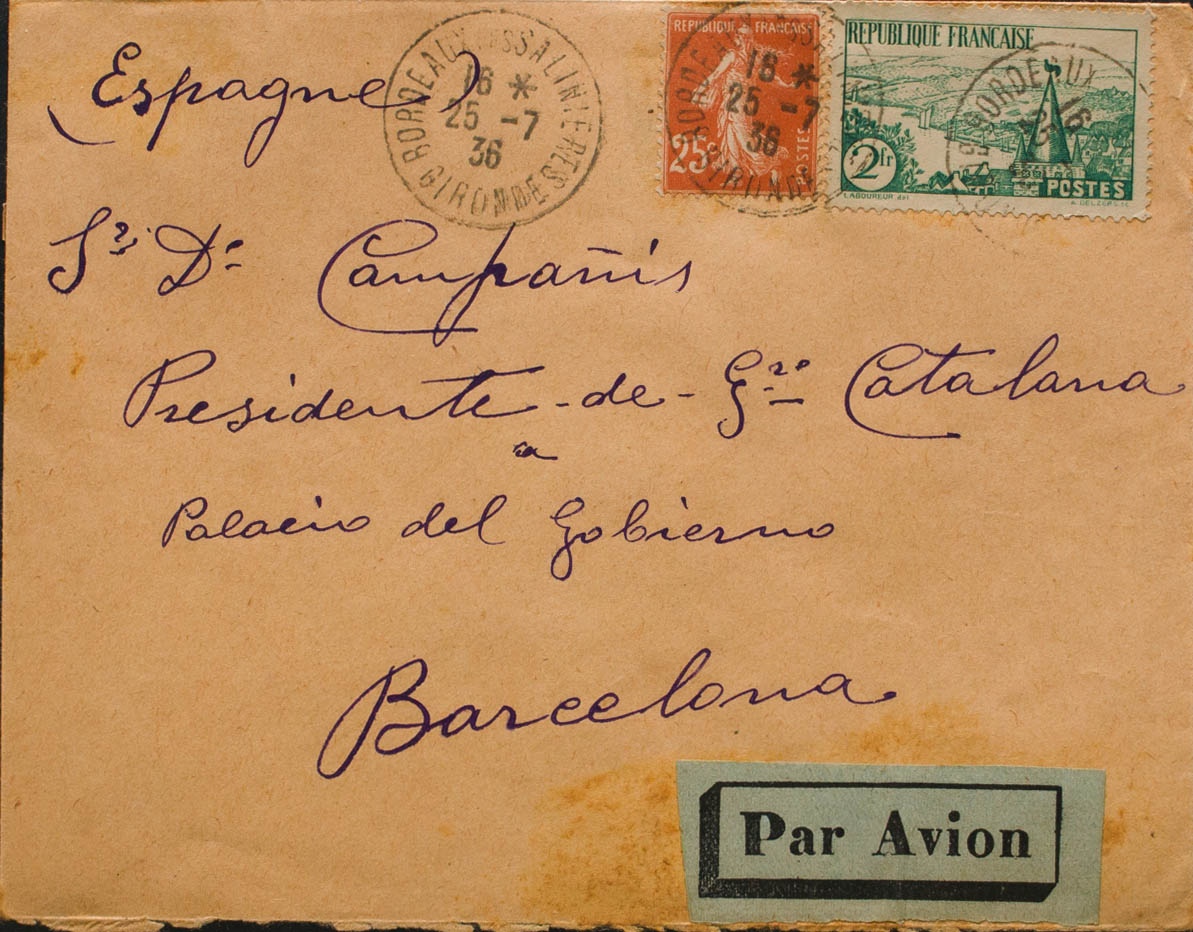 (Espagne)
BORDEAUX SALINIERES
16 *
25 -7
36
GIRONDE
REPUBLIQUE FRANÇAISE
16 *
25 -7
36
GIRONDE
25c
POSTES
REPUBLIQUE FRANÇAISE
BORDEAUX
16
25
2fr
POSTES
LABOUREUR del
Sr. Dn. Campañis
Presidente - de - Gno Catalana
a
Palacio del Gobierno
Barcelona
Par Avion